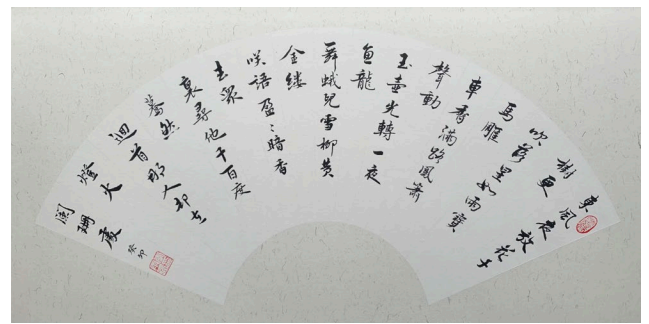 東風夜放花千
樹更
吹落星如雨寶
馬雕
車香滿路鳳簫
聲動
玉壺光轉一夜
魚龍
舞蛾兒雪柳黃
金縷
咲語盈〻暗香
去眾
裏尋他千百度
驀然
迴首那人却在
燈火
闌珊處
癸卯